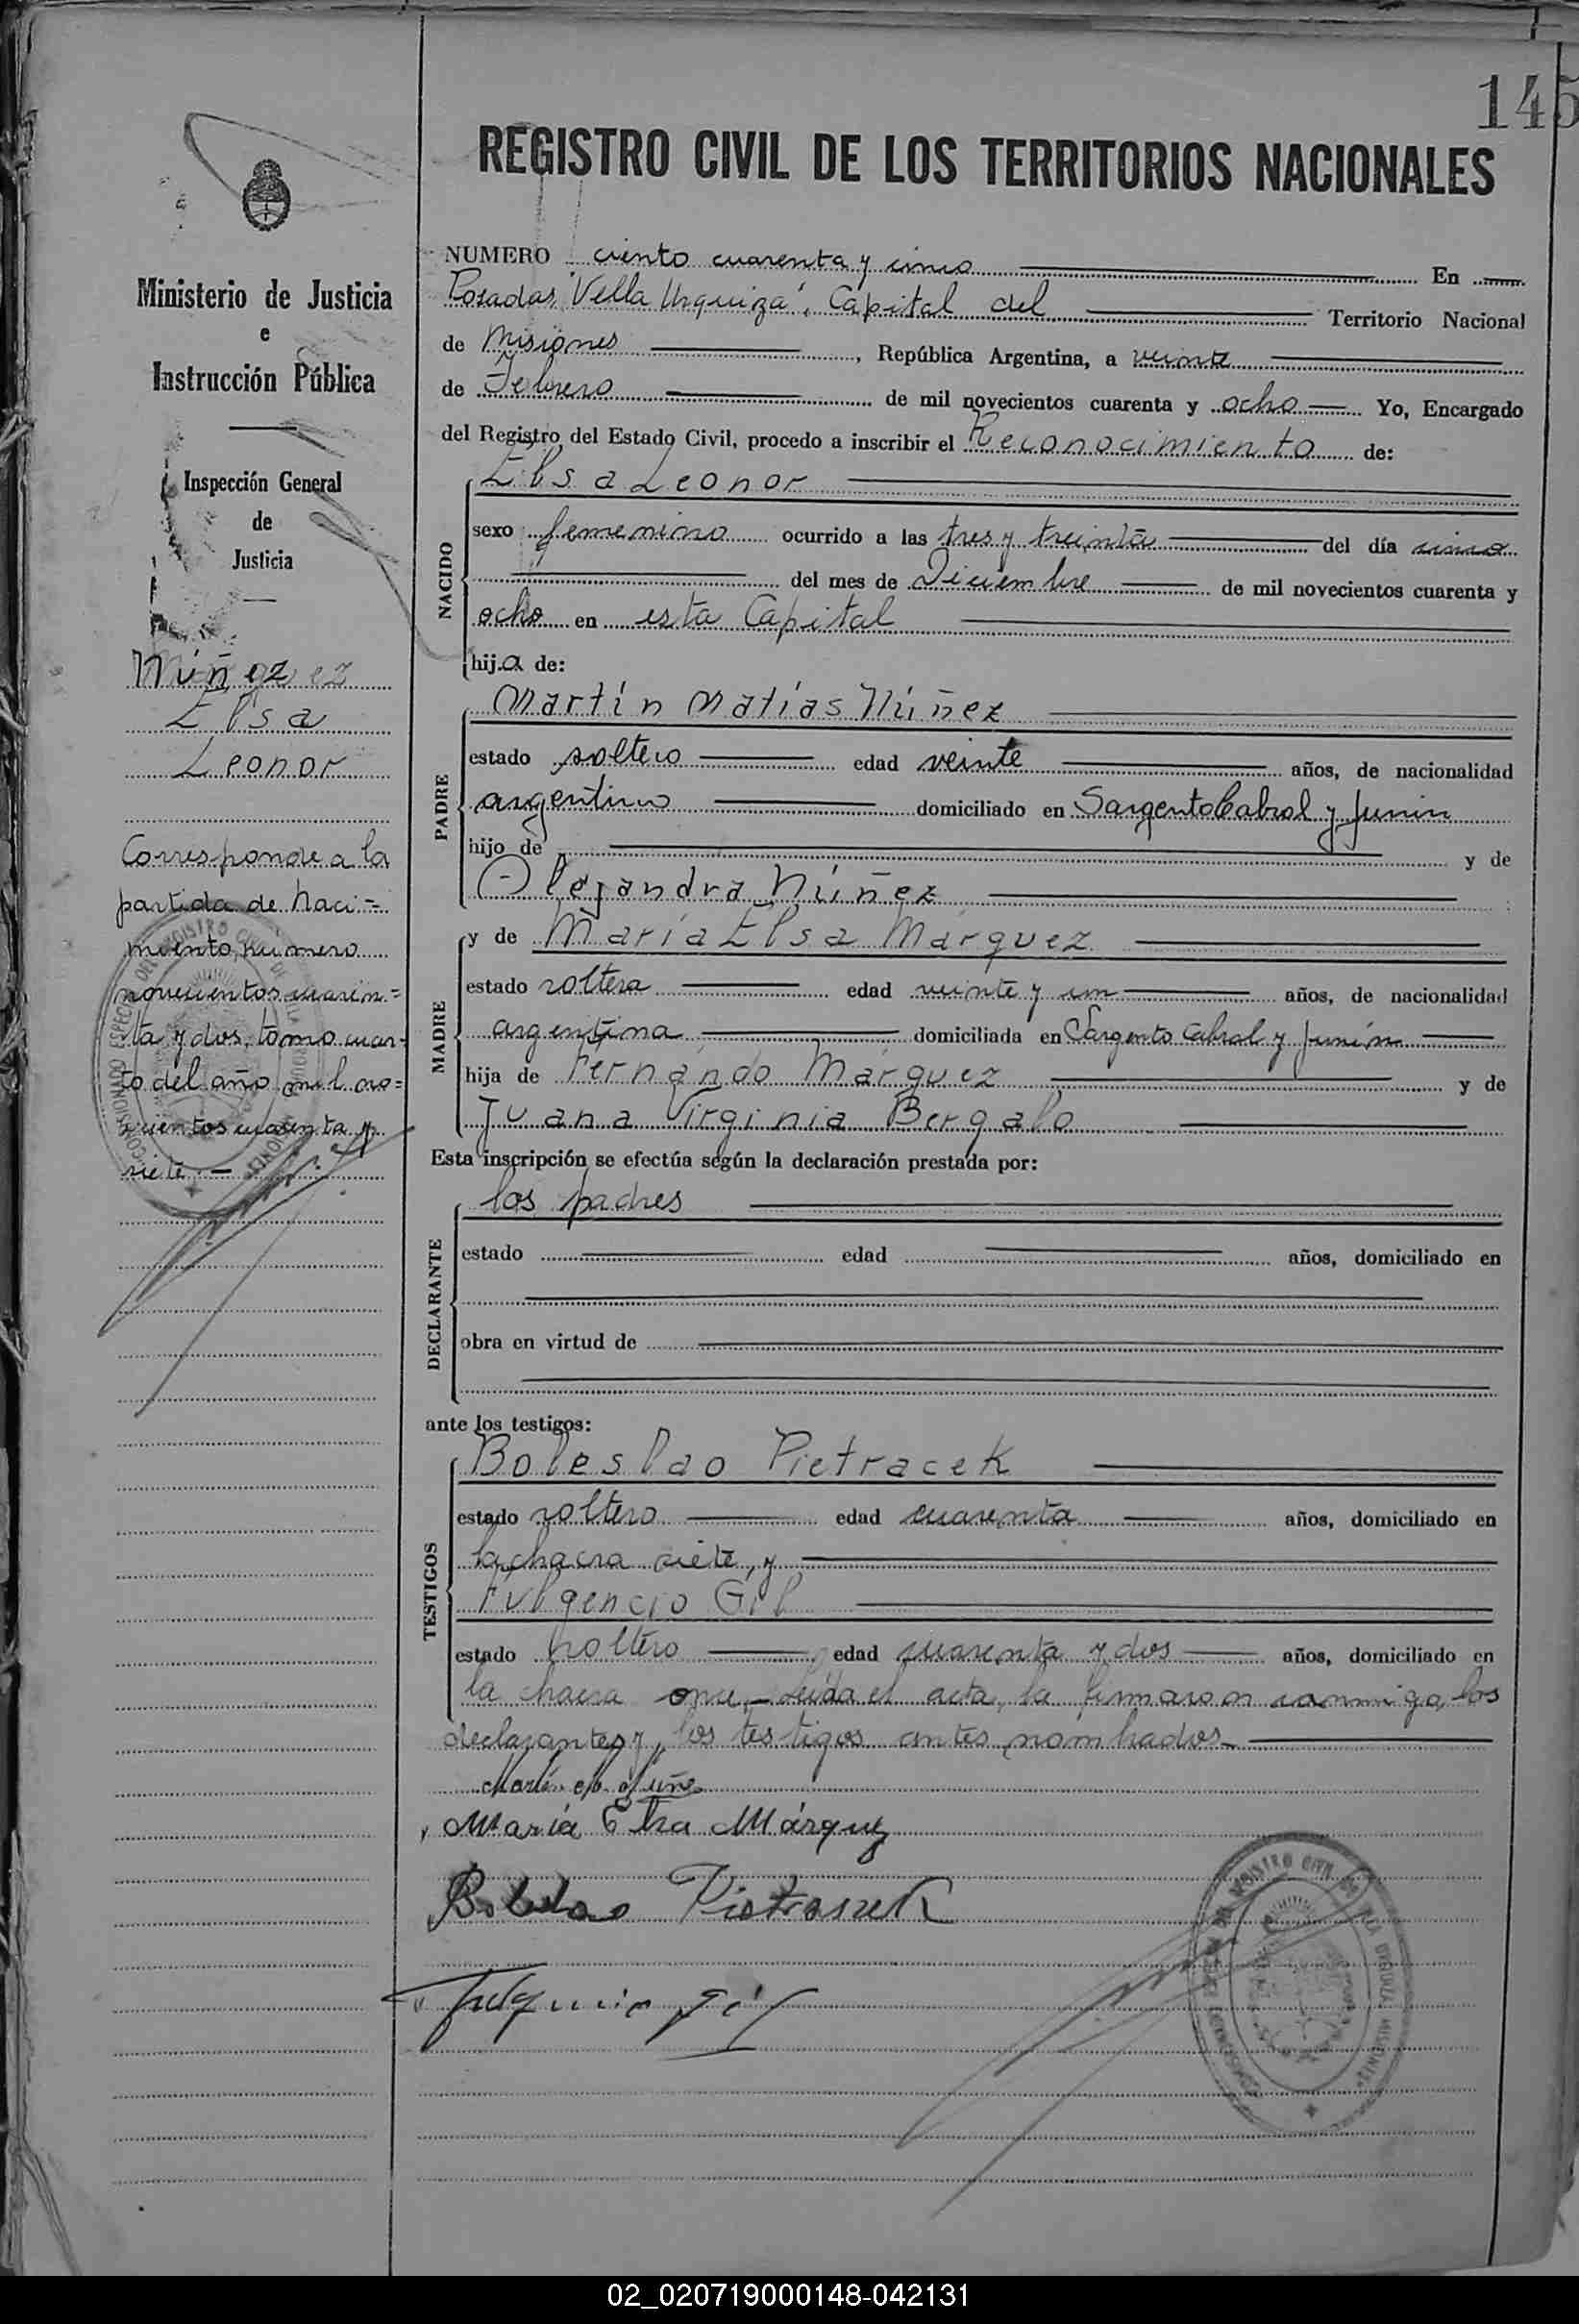 145
REGISTRO CIVIL DE LOS TERRITORIOS NACIONALES
Ministerio de Justicia
e
Instrucción Pública
Inspección General
de
Justicia
Núñez
Elsa
Leonor
Corresponde a la
partida de naci=
miento, numero
novecientos cuaren=
ta y dos, tomo cuar-
to del año mil no=
vecientos cuarenta y
siete.-
NUMERO ciento cuarenta y cinco En
Posadas, "Villa Urquiza", Capital del Territorio Nacional
de Misiones, República Argentina, a veinte
de Febrero de mil novecientos cuarenta y ocho Yo, Encargado
del Registro del Estado Civil, procedo a inscribir el Reconocimiento de:
NACIDO
Elsa Leonor
sexo femenino ocurrido a las tres y treinta del día cinco
del mes de Diciembre de mil novecientos cuarenta y
ocho en esta Capital
hija de:
PADRE
Martín Matías Núñez
estado soltero edad veinte años, de nacionalidad
argentino domiciliado en Sargento Cabral y Junin
hijo de y de
Alejandra Núñez
MADRE
y de María Elsa Márquez
estado soltera edad veinte y un años, de nacionalidad
argentina domiciliada en Sargento Cabral y Junín
hija de Fernándo Márquez y de
Juana Virginia Bergalo
Esta inscripción se efectúa según la declaración prestada por:
DECLARANTE
los padres
estado edad años, domiciliado en
obra en virtud de
ante los testigos:
TESTIGOS
Boleslao Pietracek
estado soltero edad cuarenta años, domiciliado en
la chacra siete, y
Fulgencio Gil
estado soltero edad cuarenta y dos años, domiciliado en
la chacra once.- Leída el acta, la firmaron conmigo, los
declarantes y los testigos antes nombrados.-
María Elsa Márquez
Fulgencio Gil
02_020719000148-042131